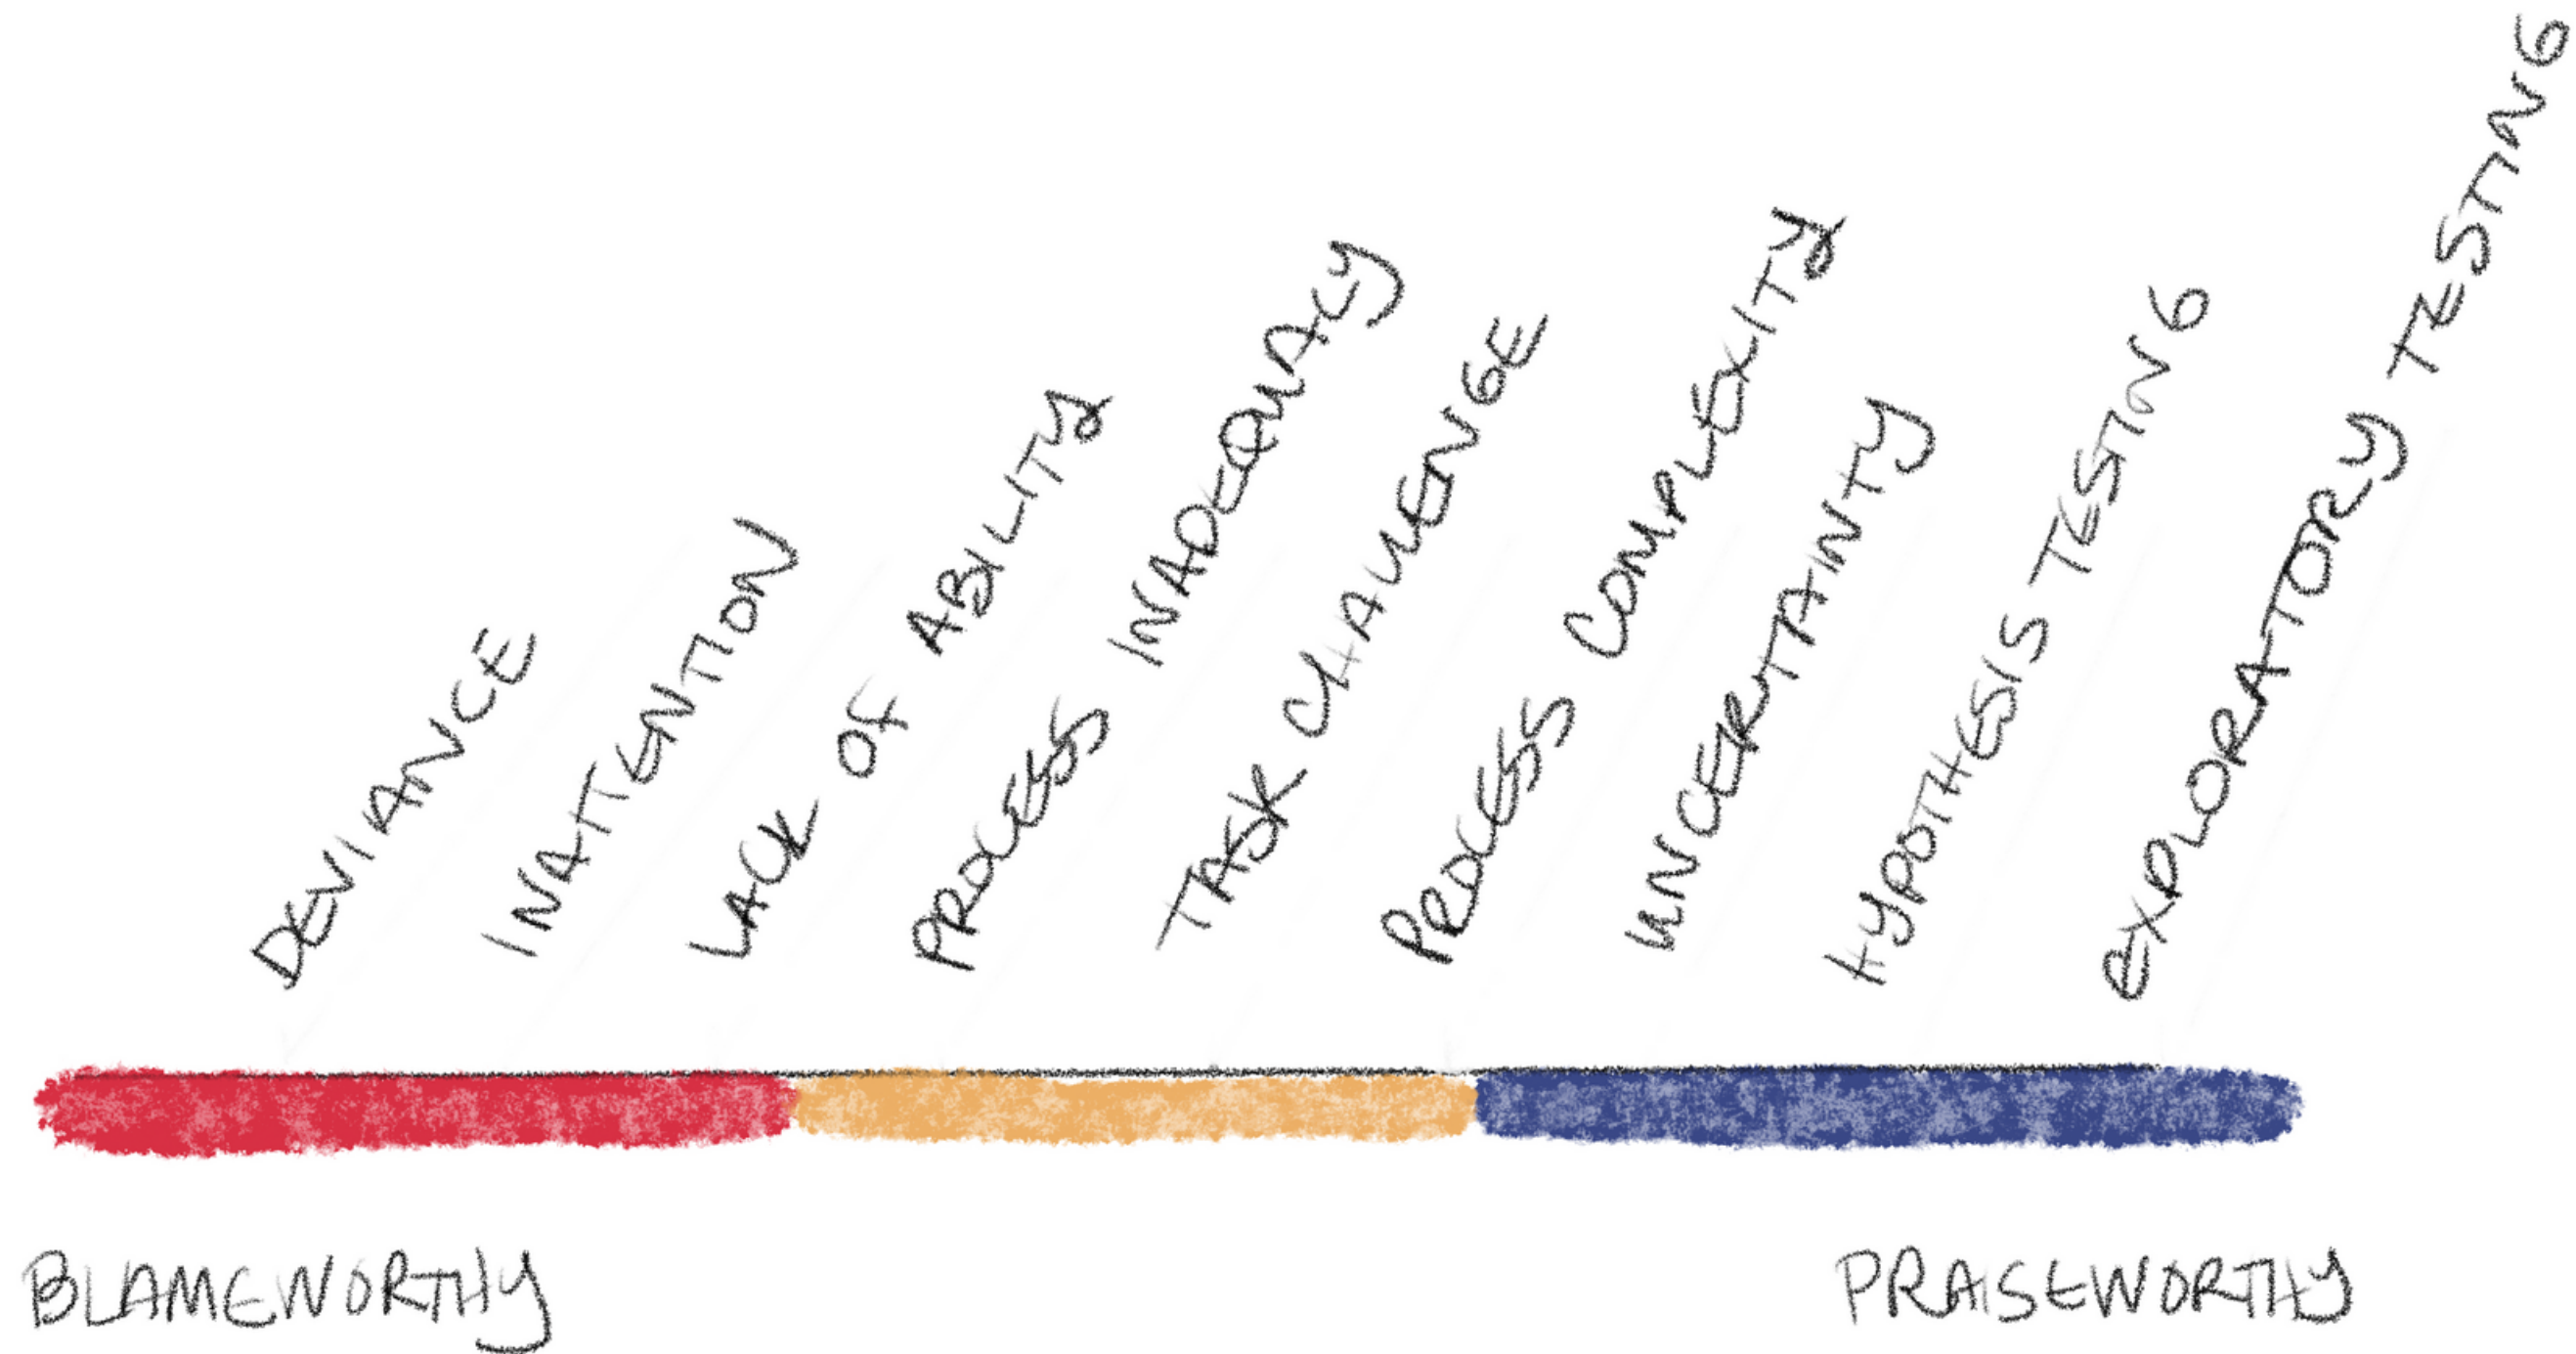 DEVIANCE
INATTENTION
LACK OF ABILITY
PROCESS INADEQUACY
TASK CHALLENGE
PROCESS COMPLEXITY
UNCERTAINTY
HYPOTHESIS TESTING
EXPLORATORY TESTING
BLAMEWORTHY
PRAISEWORTHY